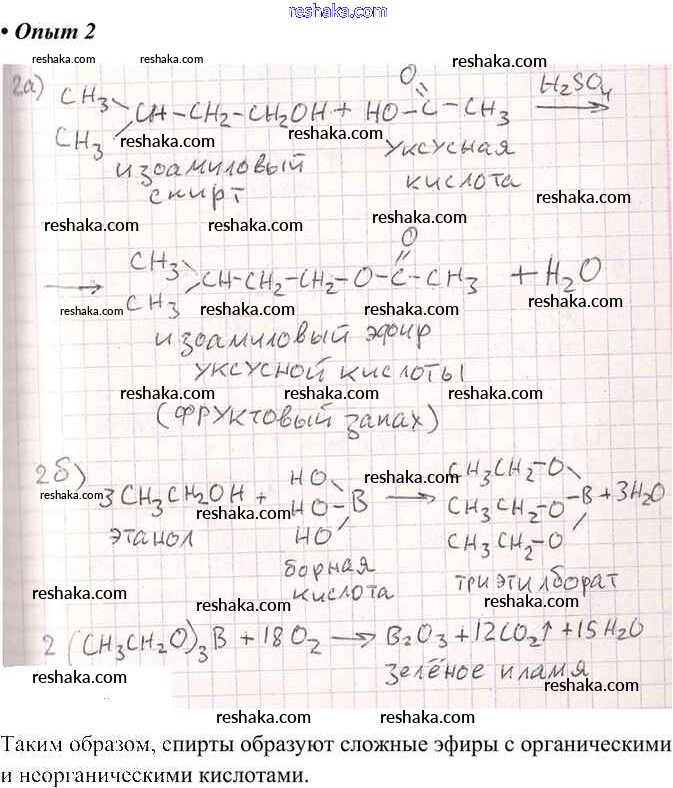 reshaka.com
• Опыт 2
reshaka.com reshaka.com reshaka.com
2а) CH3 O
CH–CH2–CH2OH + HO–C–CH3 H2SO4
CH3
reshaka.com reshaka.com reshaka.com
изоамиловый уксусная
спирт кислота
reshaka.com reshaka.com reshaka.com
CH3 O
CH–CH2–CH2–O–C–CH3 + H2O
CH3
reshaka.com reshaka.com reshaka.com reshaka.com
изоамиловый эфир
уксусной кислоты
reshaka.com reshaka.com reshaka.com
(фруктовый запах)
reshaka.com reshaka.com reshaka.com
2б) HO CH3CH2–O
3CH3CH2OH + HO–B → CH3CH2–O–B + 3H2O
HO CH3CH2–O
reshaka.com reshaka.com reshaka.com
этанол борная триэтилборат
кислота
reshaka.com reshaka.com reshaka.com
2(CH3CH2O)3B + 18O2 → B2O3 + 12CO2↑ + 15H2O
зелёное пламя
reshaka.com reshaka.com reshaka.com
Таким образом, спирты образуют сложные эфиры с органическими
и неорганическими кислотами.